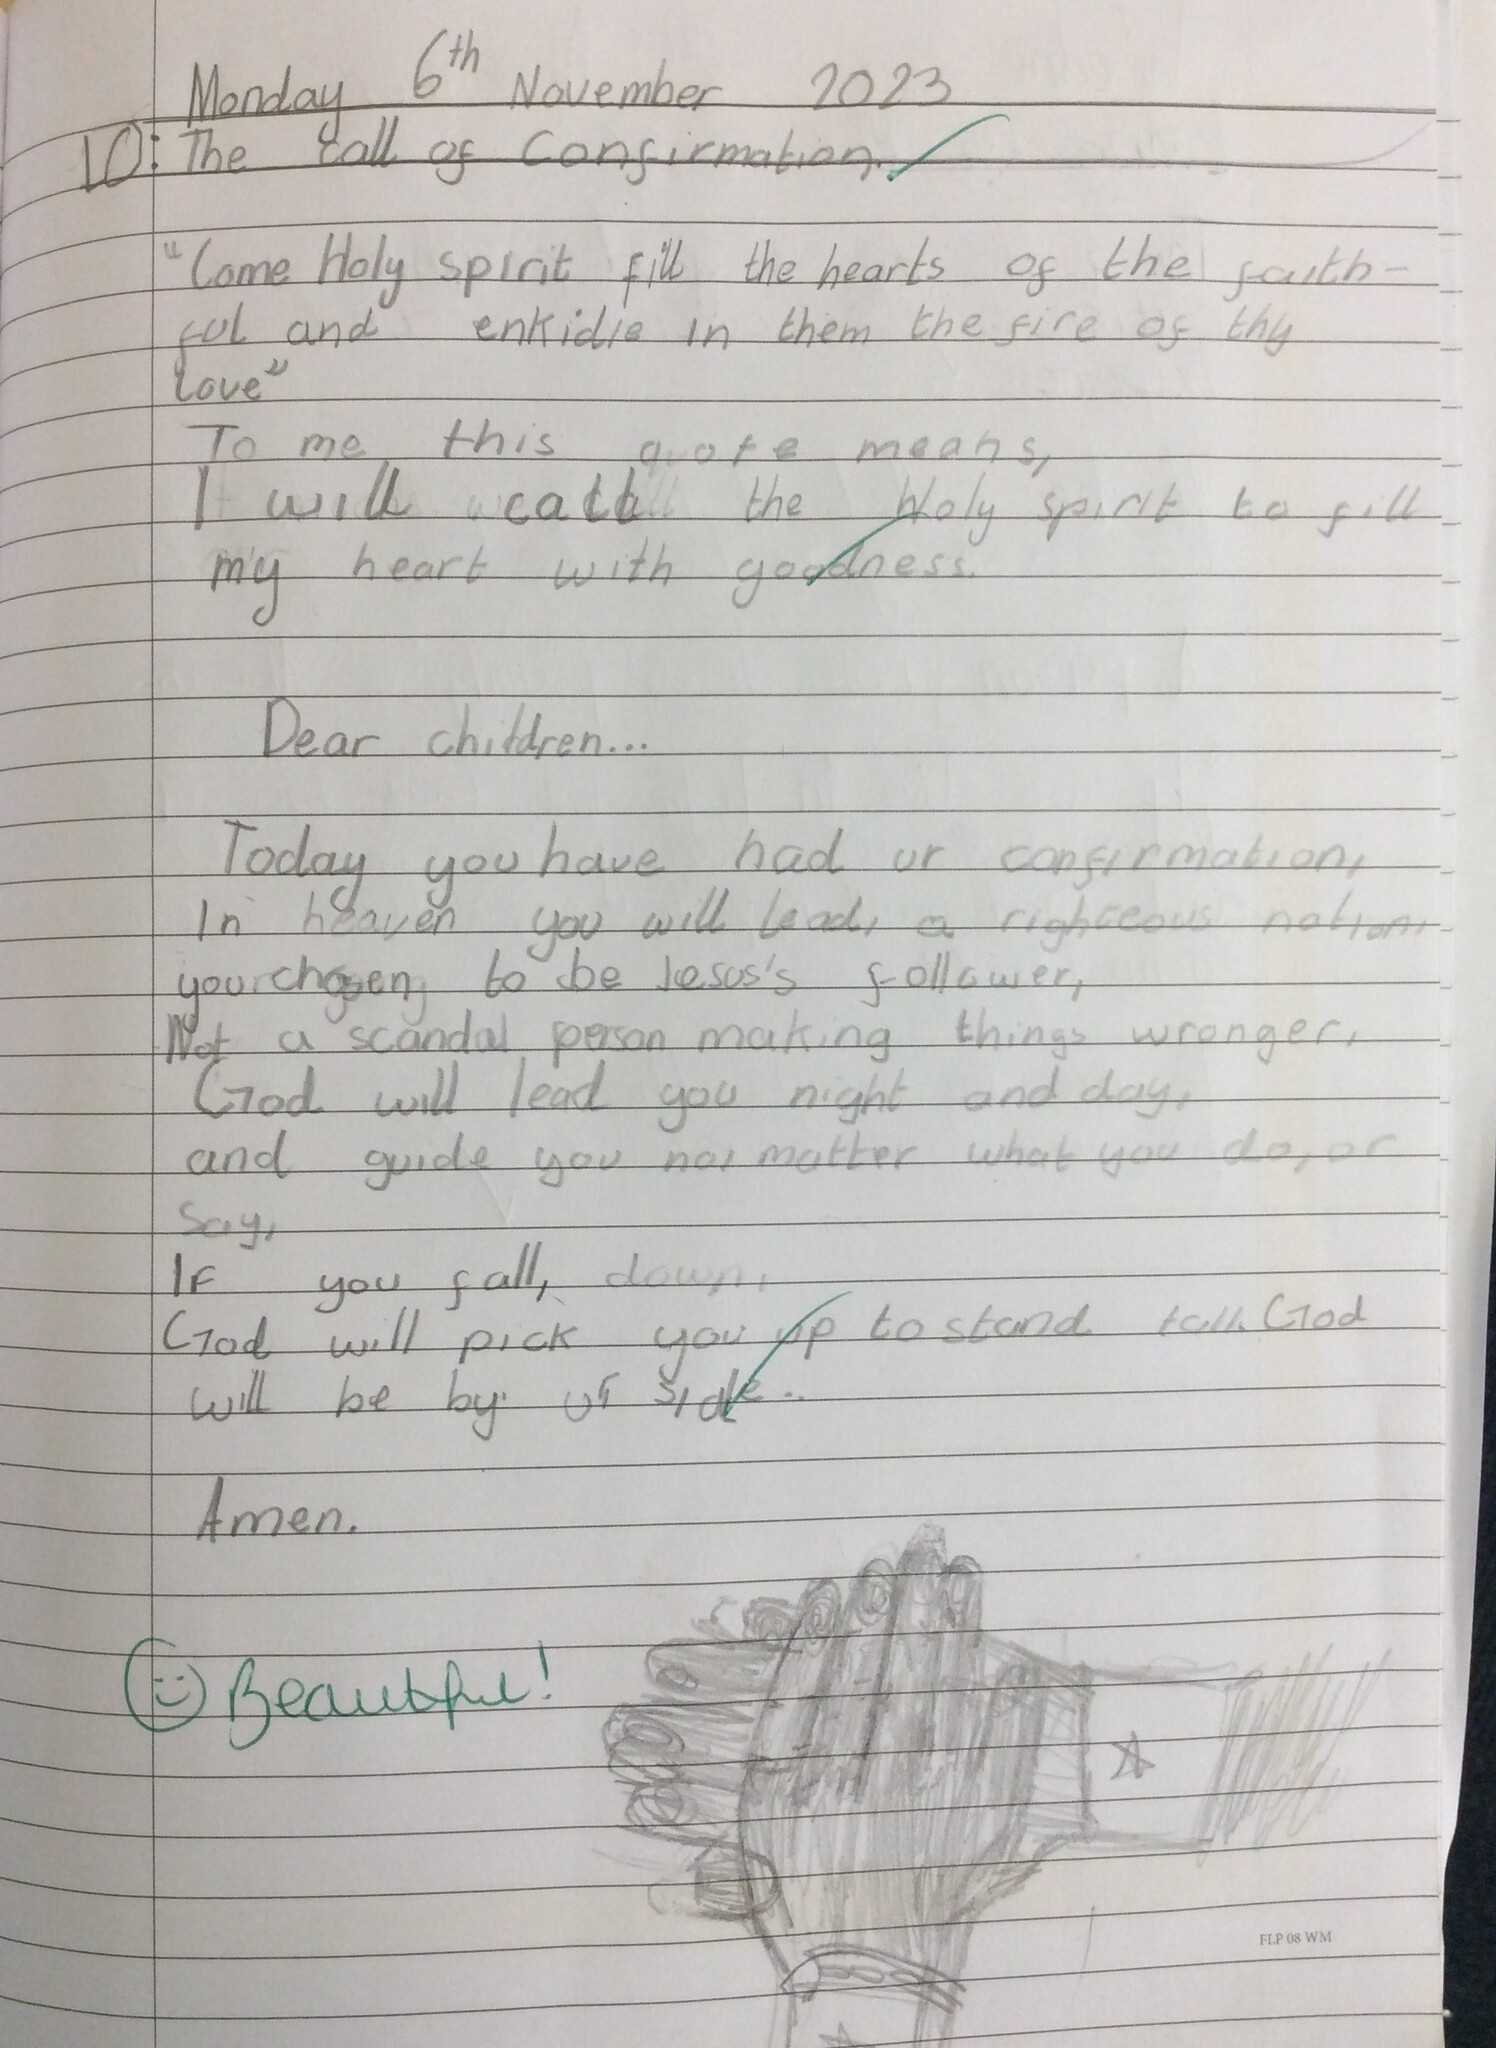 Monday 6th November 2023
LO: The call of Confirmation.
"Come Holy spirit fill the hearts of the faith-
ful and enkidle in them the fire of thy
love"
To me this quote means,
I will call the Holy spirit to fill
my heart with goodness.
Dear children...
Today you have had ur confirmation,
In heaven you will lead, a righteous nation,
your chosen to be Jesus's follower,
Not a scandal person making things wronger,
God will lead you night and day,
and guide you no matter what you do, or
say,
If you fall, down,
God will pick you up to stand tall. God
will be by ur side..
Amen.
Beautiful!
FLP 08 WM